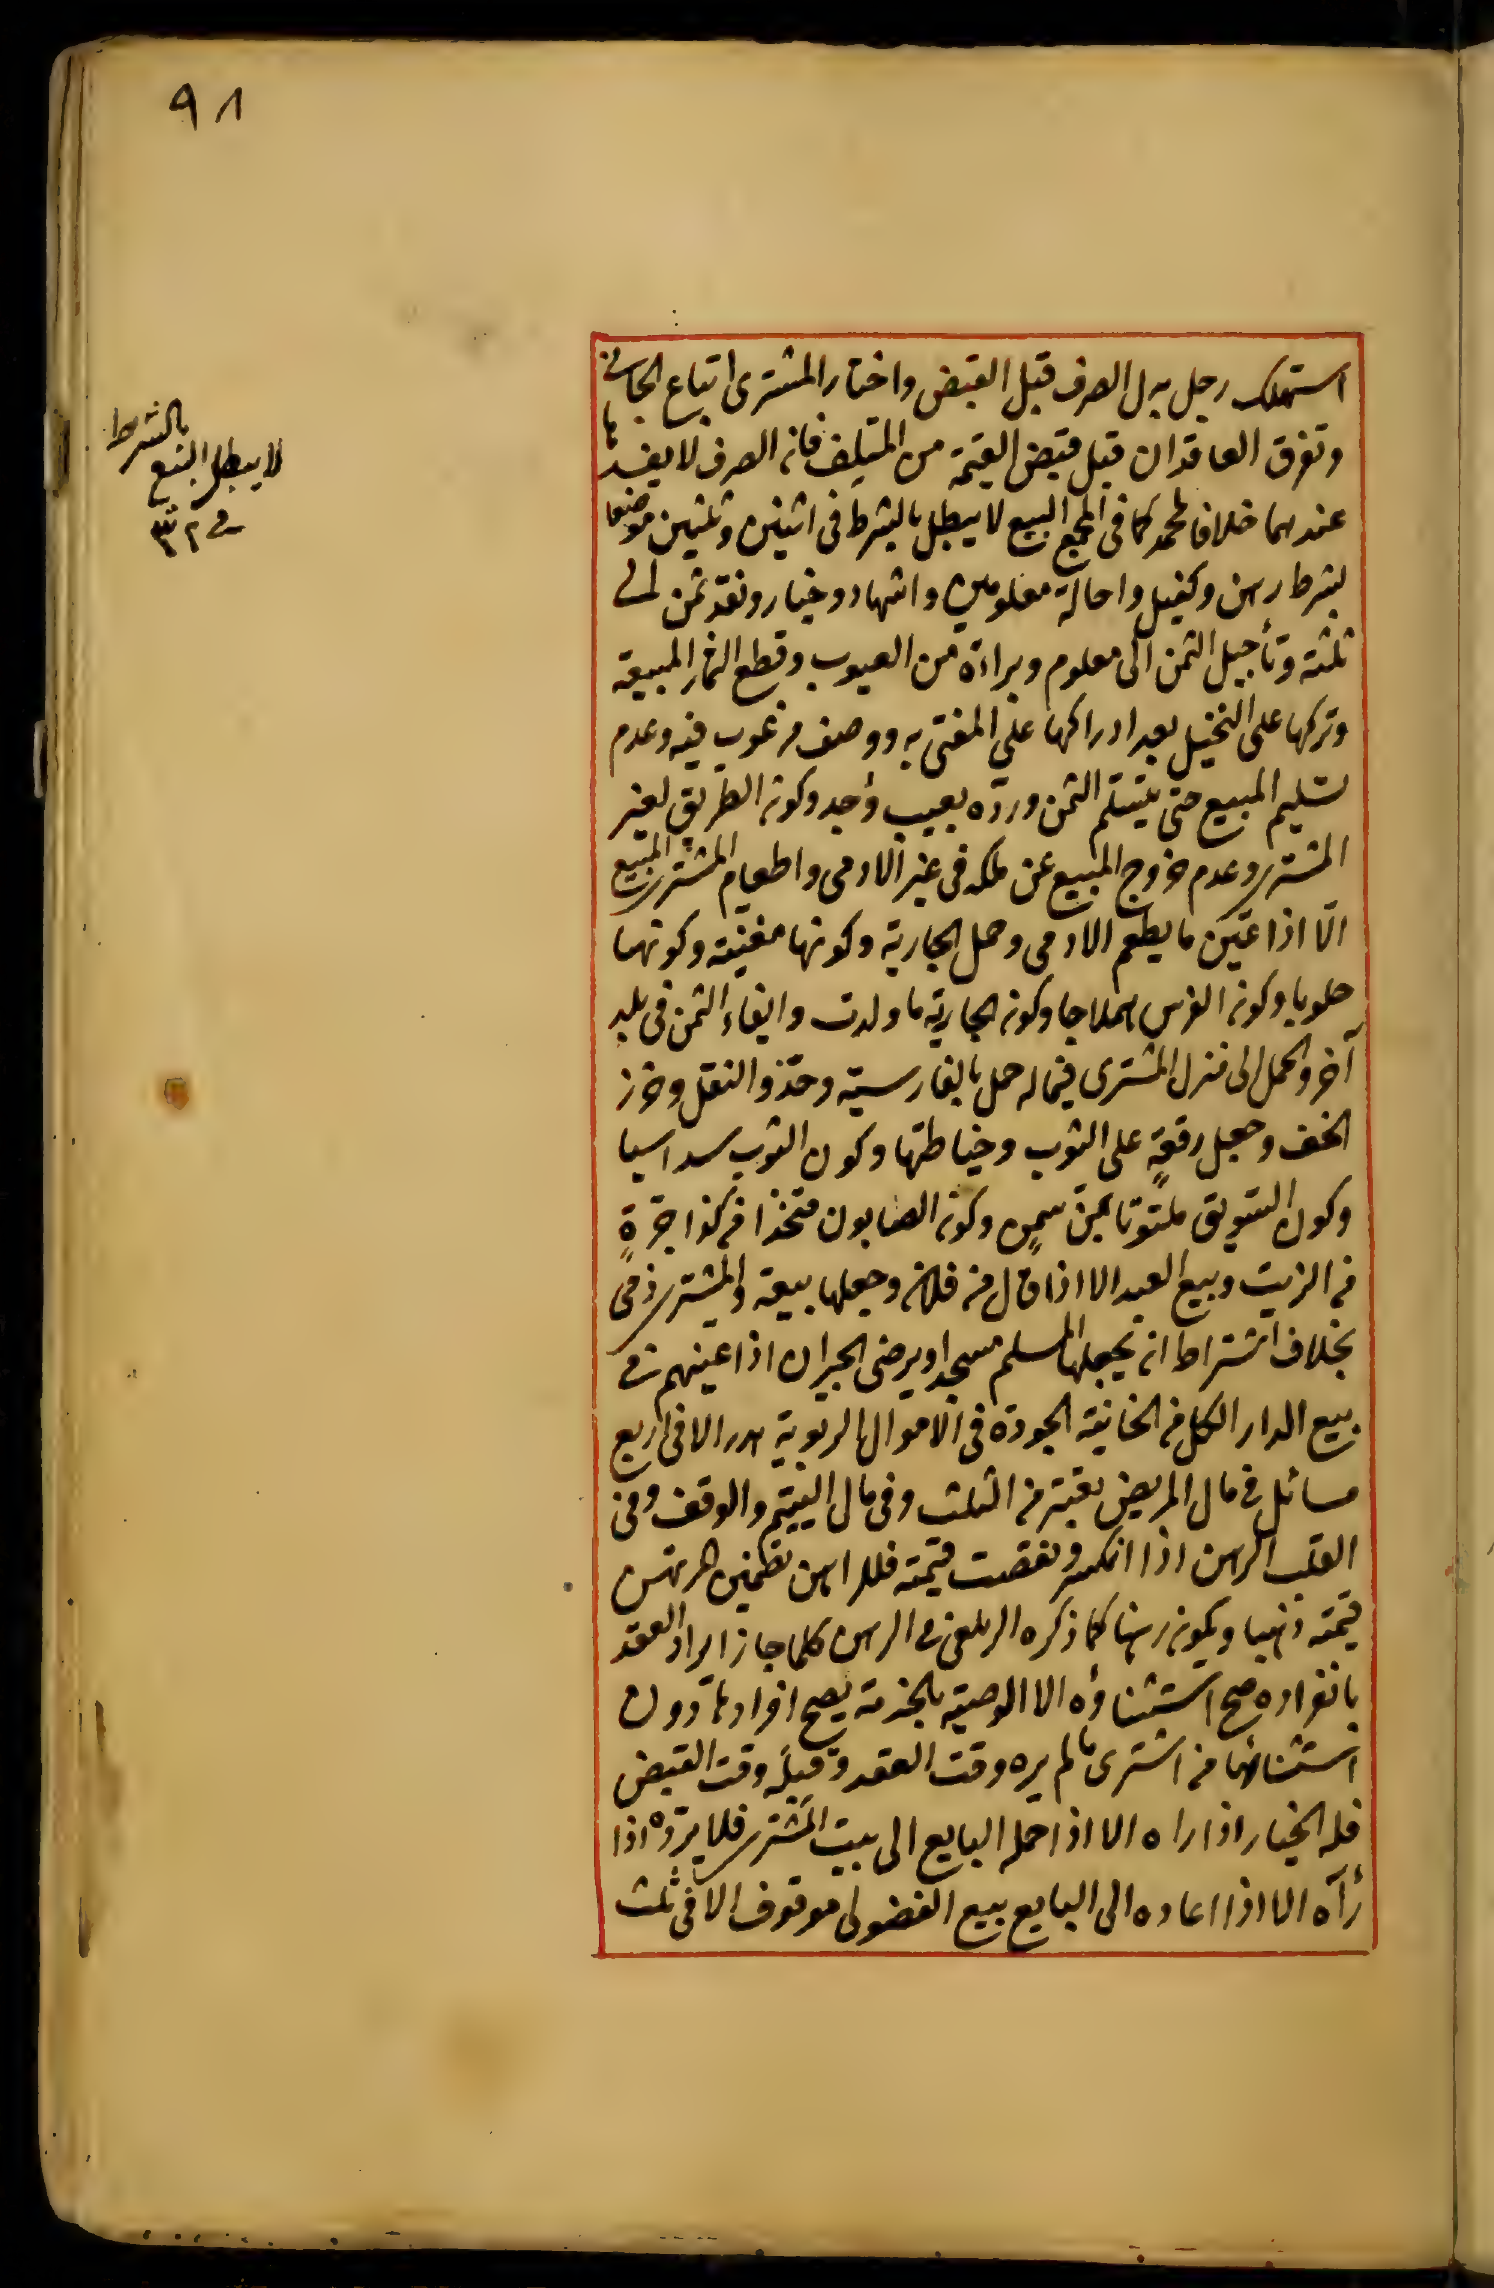 ٩٨
استهلك رجل بدل الصرف قبل القبض واختار المشترى اتباع الجانى
وتفرق العاقدان قبل قبض القيمة من المتلف فانه الصرف لا يفسد
عندهما خلافا لمحمد كما فى المجمع البيع لا يبطل بالشرط فى اثنين وثلثين موضعا
بشرط رهن وكفيل واحالة معلومين واشهاد وخيار ونقد ثمن الى
ثلثة وتأجيل الثمن الى معلوم وبراءة من العيوب وقطع الثمار المبيعة
وتركها على النخيل بعد ادراكها على المفتى به ووصف مرغوب فيه وعدم
تسليم المبيع حتى يتسلم الثمن وردّه بعيب وُجد وكونه الطريق لغير
المشترى وعدم خروج المبيع عن ملكه فى غير الادمى واطعام المشترى المبيع
الّا اذا عيّن ما يطعم الادمى وحمل الجارية وكونها مغنّية وكونها
حلوبا وكونه الفرس هملاجا وكونه الجارية ما ولدت وايفاء الثمن فى بلد
آخر والحمل الى منزل المشترى فيما له حمل بالفارسية وحذو النعل وخرز
الخف وجعل رقعةٍ على الثوب وخياطتها وكون الثوب سداسيا
وكون السويق ملتوتا بمنّ سمنٍ وكونه الصابون متخذا من كذا جرّةٍ
من الزيت وبيع العبد الا اذا قال من فلان وجعلها بيعة والمشترى ذمى
بخلاف اشتراط ان يجعلها المسلم مسجدا ويرضى الجيران اذا عينهم فى
بيع الدار الكل من الخانية الجودة فى الاموال الربوية هدر الا فى اربع
مسائل فى مال المريض تعتبر من الثلث وفى مال اليتيم والوقف وفى
القلب الرهن اذا انكسر ونقصت قيمته فللراهن تضمين المرتهن
قيمته ذهبا ويكونه رهنا كما ذكره الزيلعى فى الرهن كلما جاز ايراد العقد
بانفراده صح استثناؤه الا الوصية بالخدمة يصح افرادها دون
استثنائها من اشترى ما لم يره وقت العقد وقبله وقت القبض
فله الخيار اذا راه الا اذا حمله البايع الى بيت المشترى فلا يردّه اذا
رآه الا اذا اعاده الى البايع بيع الفضولى موقوف الا فى ثلث
لا يبطل البيع
بالشرط
فى ٣٢